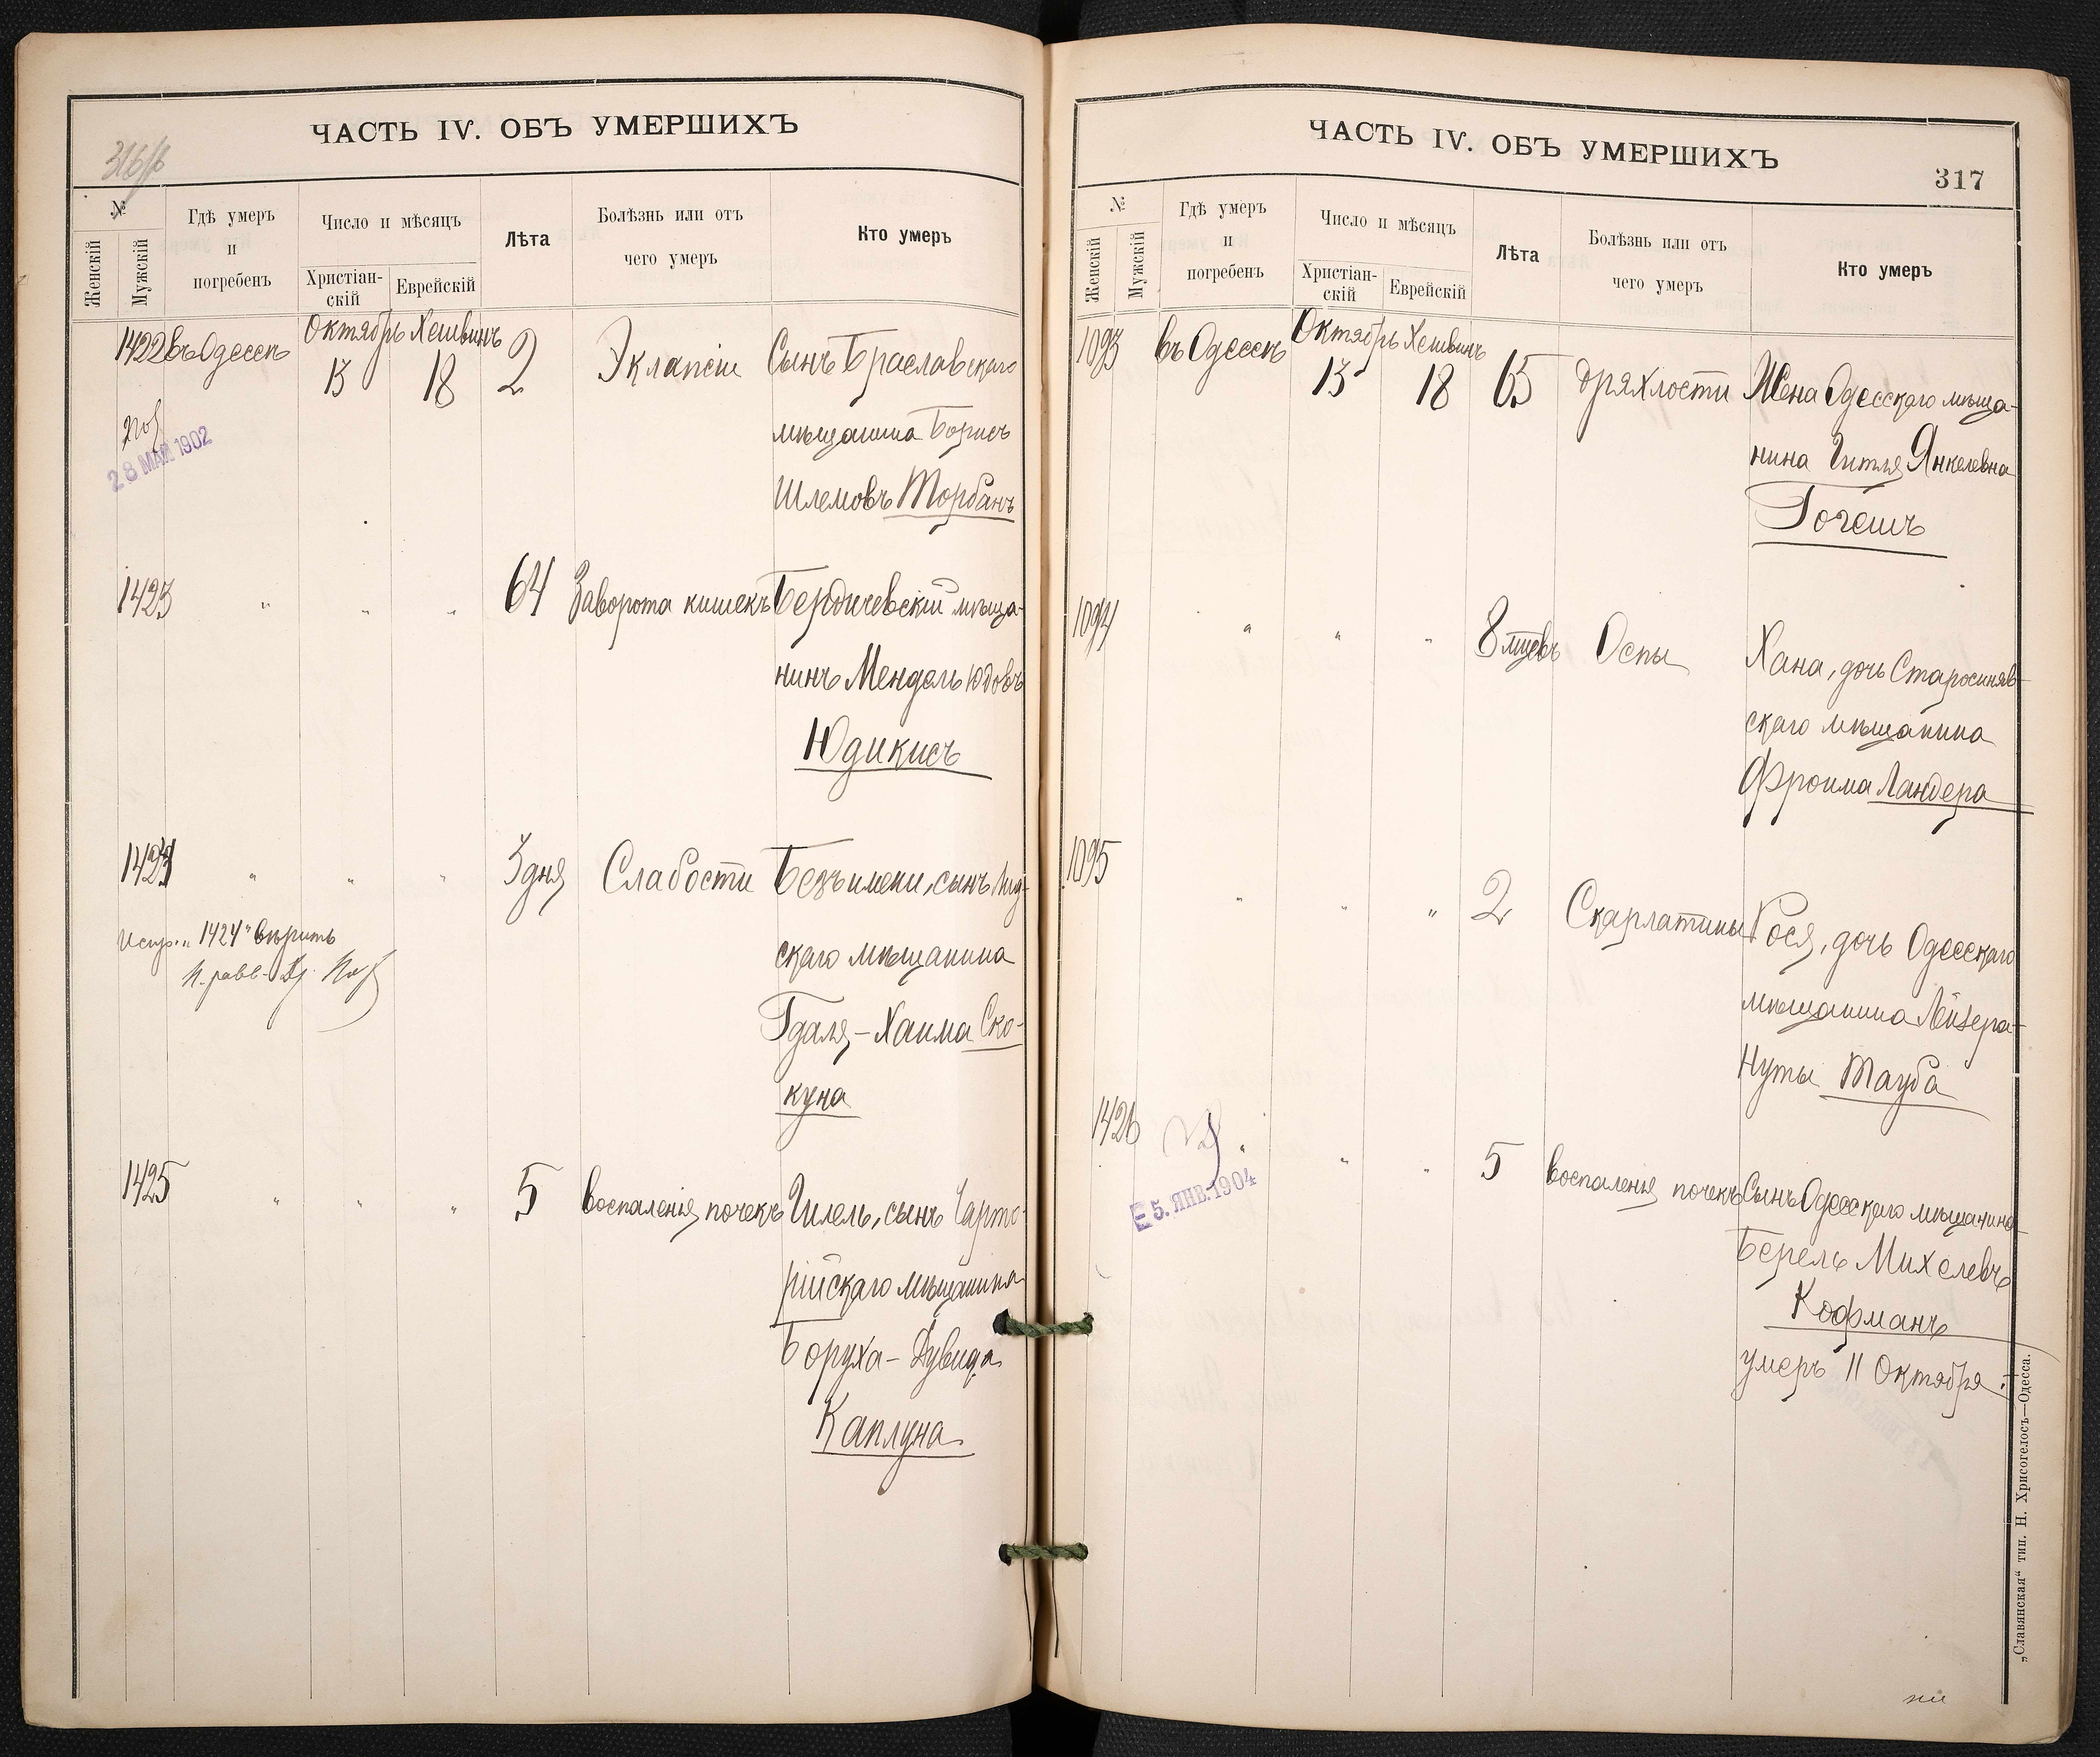 ЧАСТЬ IV. ОБЪ УМЕРШИХЪ
316/б
№
Женскій
Мужскій
Гдѣ умеръ
и
погребенъ
Число и мѣсяцъ
Христіан-
скій
Еврейскій
Лѣта
Болѣзнь или отъ
чего умеръ
Кто умеръ
1422 въ Одессѣ Октябрь 13 Хешвинъ 18 2 Эклапсіи Сынъ Браславскаго
мѣщанина Борисъ
Шлемовъ Торбанъ
28 МАЯ 1902
1423 " " " 64 Заворота кишекъ Бердичевскій мѣща-
нинъ Мендель Юдовъ
Юдикисъ
1424 " " " 3 дня Слабости Безъ имени, сынъ Лид-
скаго мѣщанина
Гдаля-Хаима Ско-
куна
Испр. "1424" вѣрить
1425 " " " 5 воспаленія почекъ Гилель, сынъ Чарто-
рійскаго мѣщанина
Боруха-Дувида
Каплуна
ЧАСТЬ IV. ОБЪ УМЕРШИХЪ
317
№
Женскій
Мужскій
Гдѣ умеръ
и
погребенъ
Число и мѣсяцъ
Христіан-
скій
Еврейскій
Лѣта
Болѣзнь или отъ
чего умеръ
Кто умеръ
1093 въ Одессѣ Октябрь 13 Хешвинъ 18 65 дряхлости Жена Одесскаго мѣща-
нина Гитля Янкелевна
Гогешъ
1094 " " " 8 мцевъ Оспы Хана, дочь Старосиняв-
скаго мѣщанина
Фроима Ландера
1095 " " " 2 Скарлатины Рося, дочь Одесскаго
мѣщанина Лейзера-
Нуты Тауба
1426 " " " 5 воспаленія почекъ Сынъ Одесскаго мѣщанина
Берель Михелевъ
Кофманъ
умеръ 11 Октября.
5. ЯНВ. 1904
„Славянская“ тип. Н. Хрисогелосъ—Одесса.